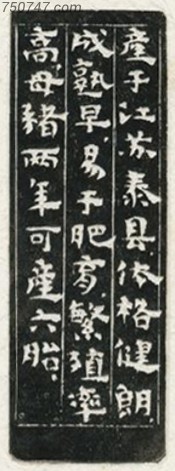 750747.com
產于江苏泰县.体格健朗.
成熟早.易于肥育.繁殖率
高.母豬两年可產六胎.